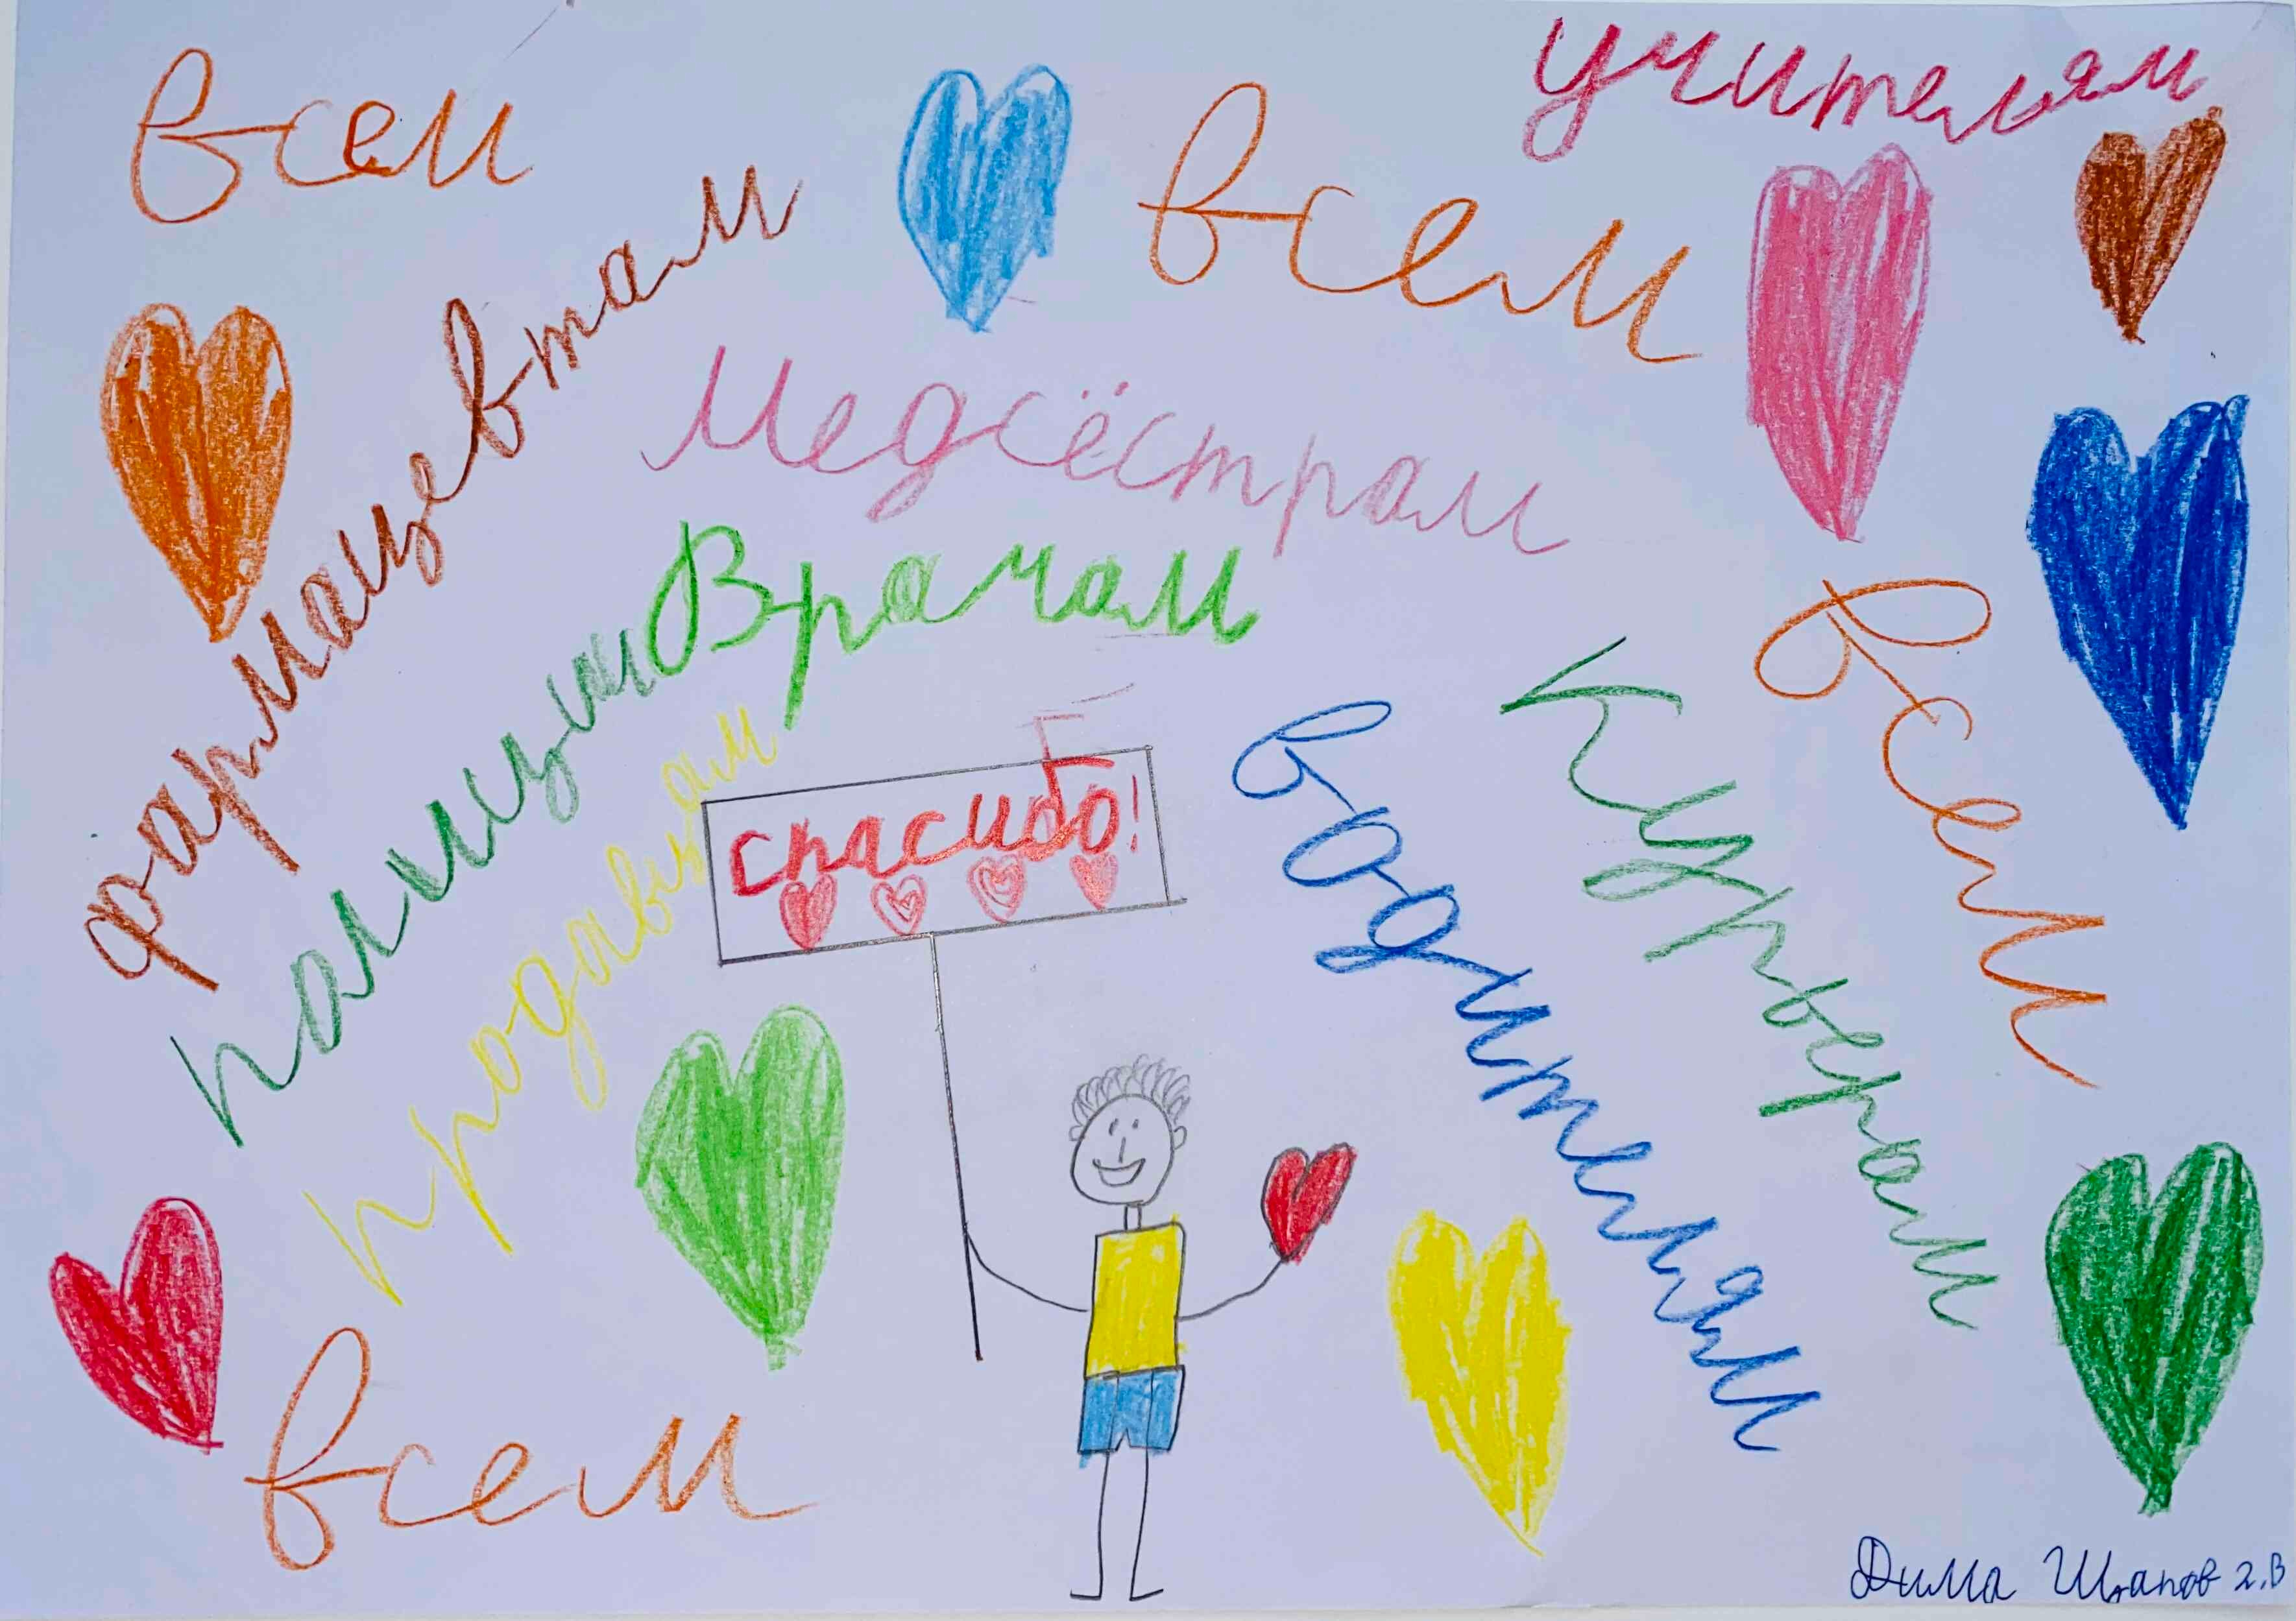 всем
учителям
всем
фармацевтам
Медсёстрам
Врачам
полицим
продавцам
спасибо!
водителям
курьерам
всем
всем
Дима 2.В